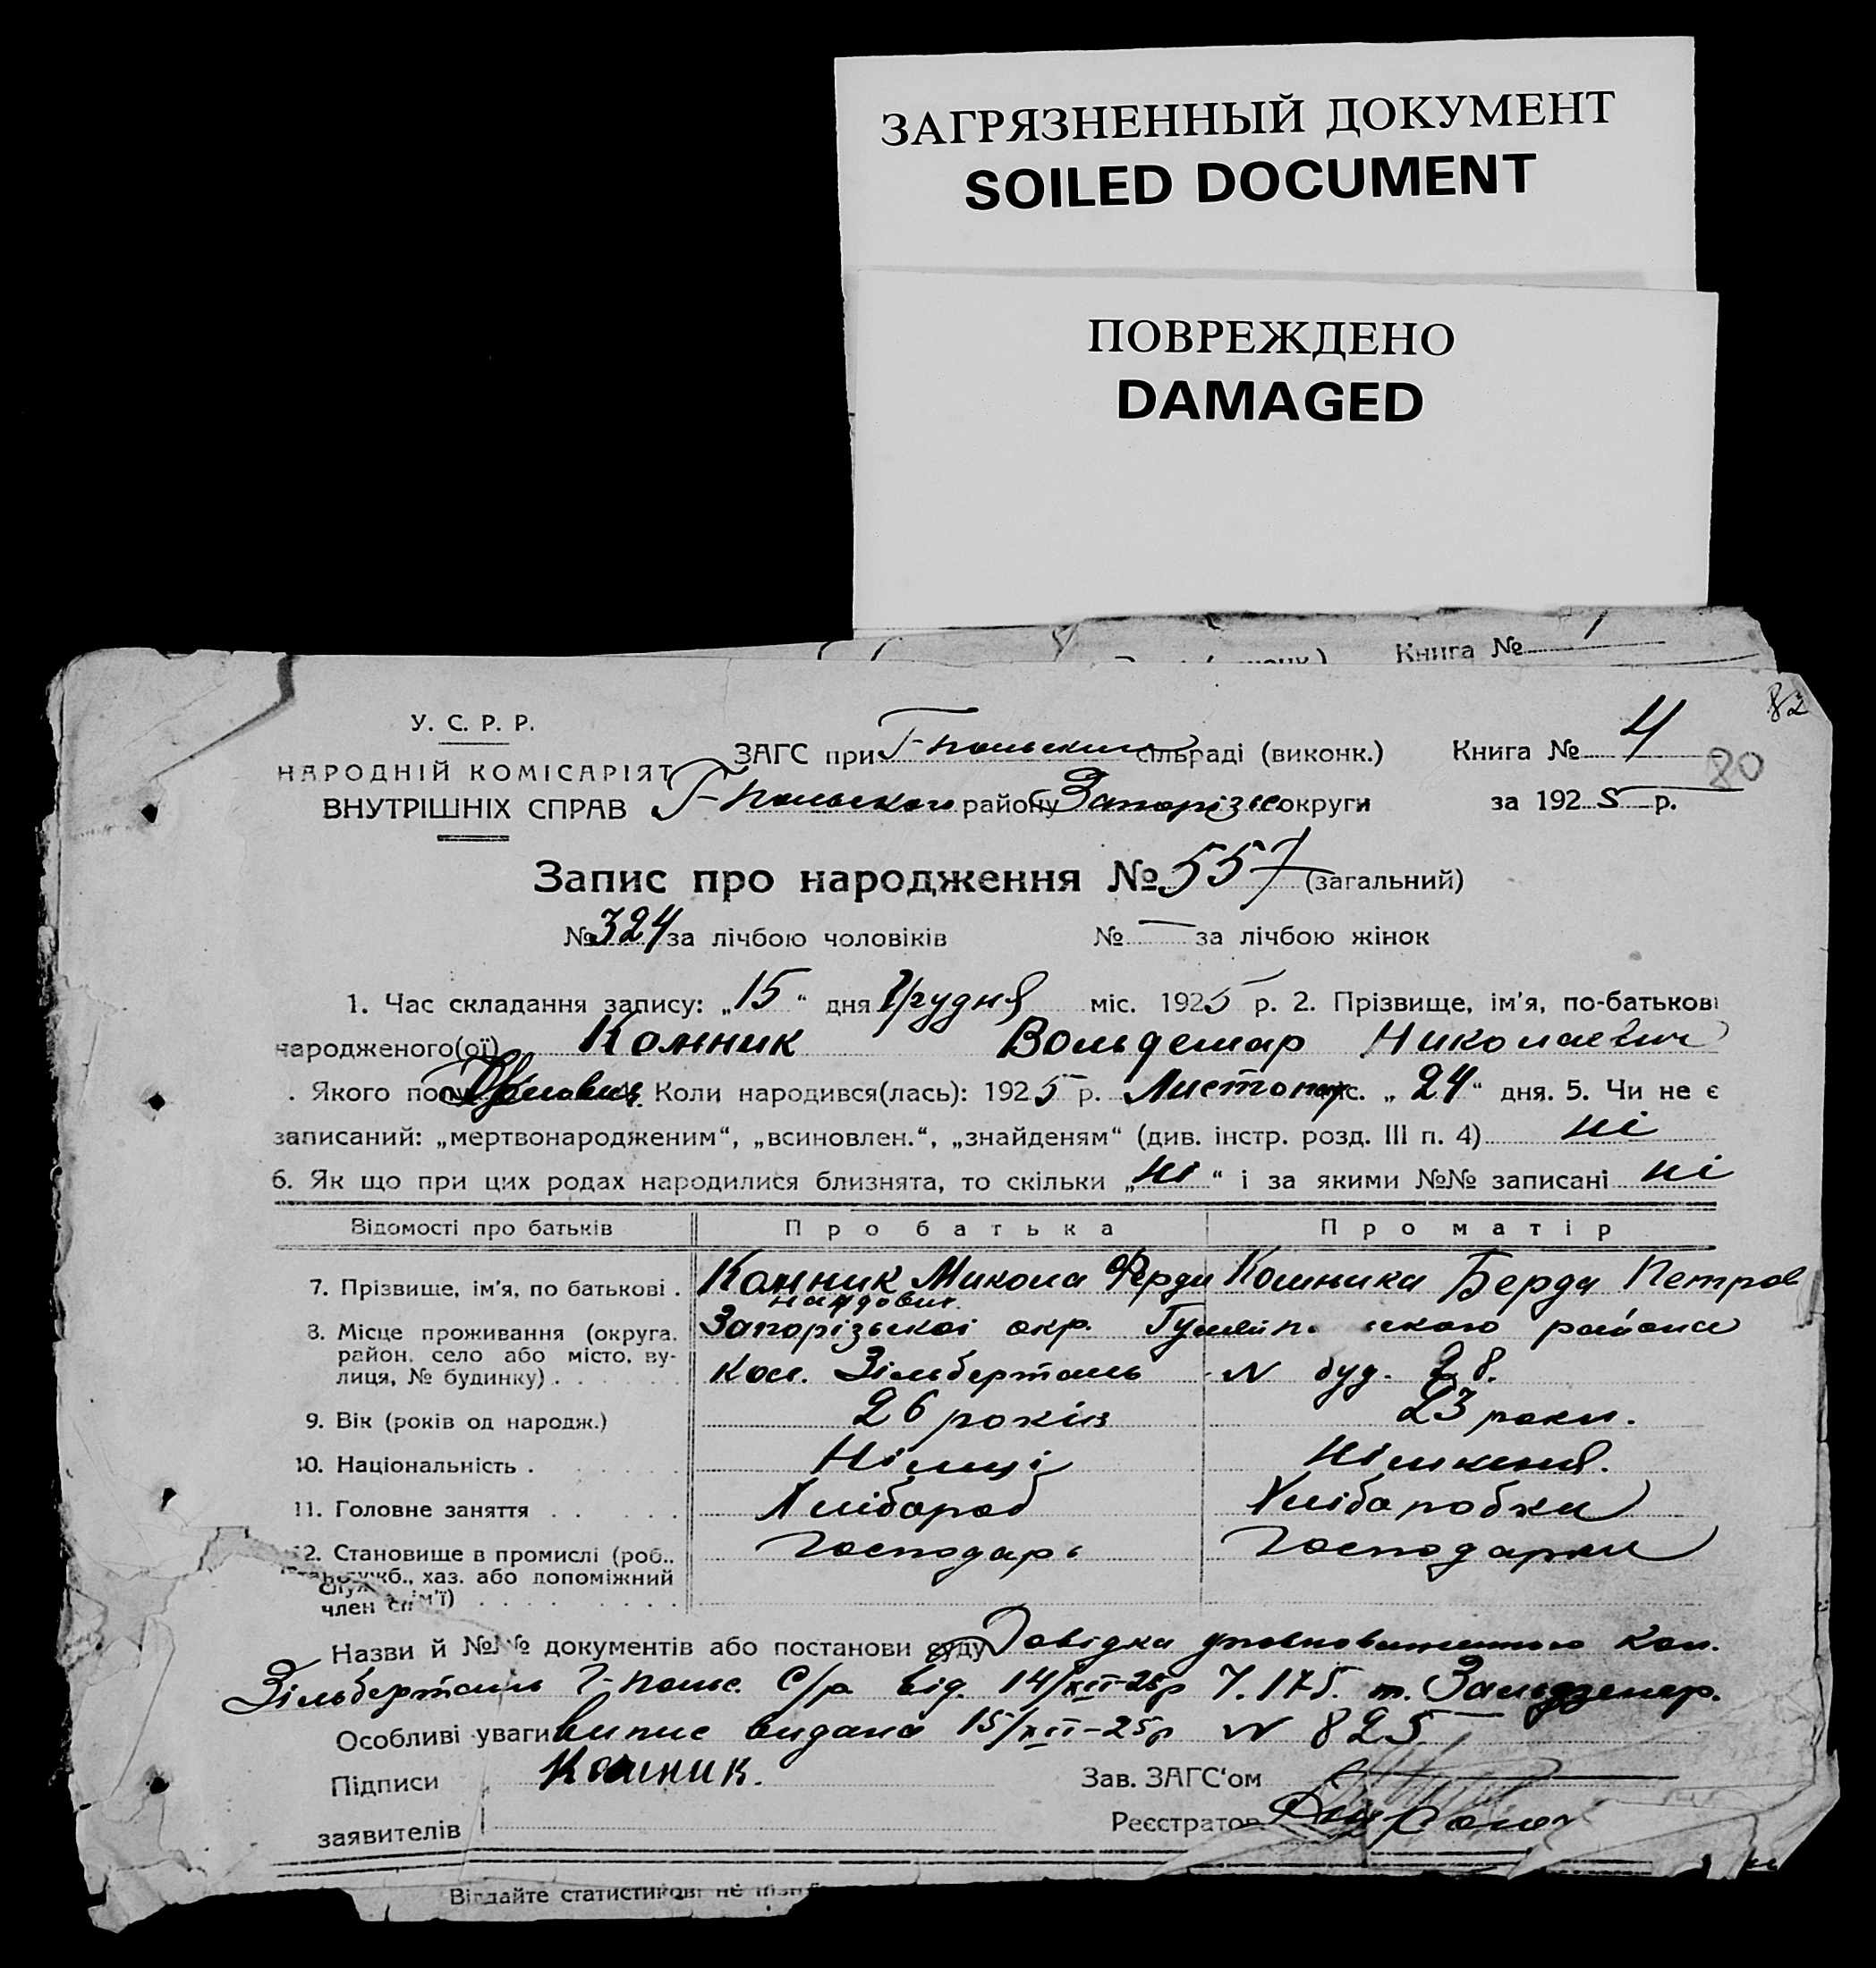 ЗАГРЯЗНЕННЫЙ ДОКУМЕНТ
SOILED DOCUMENT
ПОВРЕЖДЕНО
DAMAGED
Книга №
82
У. С. Р. Р.
НАРОДНІЙ КОМІСАРІЯТ
ВНУТРІШНІХ СПРАВ
ЗАГС при Г-польским сільраді (виконк.) Книга № 4
20
Г-польского району Запорізьс округи за 1925 р.
Запис про народження № 557 (загальний)
№ 324 за лічбою чоловіків № — за лічбою жінок
1. Час складання запису: „15“ дня Грудня міс. 1925 р. 2. Прізвище, ім'я, по-батькові
народженого(ої) Комник Вольдемар Николаевич
. Якого полу Коли народився(лась): 1925 р. Листопад міс. „24“ дня. 5. Чи не є
записаний: „мертвонародженим“, „всиновлен.“, „знайденям“ (див. інстр. розд. III п. 4) ні
6. Як що при цих родах народилися близнята, то скільки „ні“ і за якими №№ записані ні
Відомості про батьків Про батька Про матір
7. Прізвище, ім'я, по батькові . Комник Микола Ферди Комника Берда Петров
нандович
8. Місце проживання (округа, Запорізькоі окр. ського района
район, село або місто, ву-
лиця, № будинку) . Кол. Зільберталь N буд. 28.
9. Вік (років од народж.) 26 років 23 роки.
10. Національність . Німці Німкеня.
11. Головне заняття . Хлібороб Хліборобка
12. Становище в промислі (роб., Господарь Господарка
служб., хаз. або допоміжний
член сім'ї)
Назви й №№ документів або постанови суду Довідка уповноваженого кол.
Зільберталь Г-польс. С/р від. 14/XII-25р Ч. 175. т.
Особливі уваги Випис видана 15/XII-25р N 825
Підписи Комник.
Зав. ЗАГС'ом
Реєстратор
заявителів